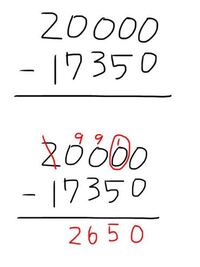 20000
- 17350
9 9 1
20000
- 17350
2650